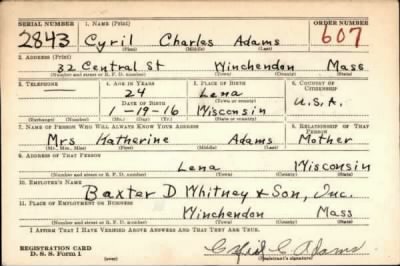 SERIAL NUMBER 1. NAME (Print) ORDER NUMBER
2843 Cyril Charles Adams 607
(First) (Middle) (Last)
2. ADDRESS (Print)
32 Central St Winchendon Mass
(Number and street or R. F. D. number) (Town) (County) (State)
3. TELEPHONE 4. AGE IN YEARS 5. PLACE OF BIRTH 6. COUNTRY OF CITIZENSHIP
24 Lena
DATE OF BIRTH (Town or county)
1-19-16 Wisconsin U.S.A.
(Exchange) (Number) (Mo.) (Day) (Yr.) (State or country)
7. NAME OF PERSON WHO WILL ALWAYS KNOW YOUR ADDRESS 8. RELATIONSHIP OF THAT PERSON
Mrs Katherine Adams Mother
(Mr., Mrs., Miss) (First) (Middle) (Last)
9. ADDRESS OF THAT PERSON
Lena Wisconsin
(Number and street or R. F. D. number) (Town) (County) (State)
10. EMPLOYER'S NAME
Baxter D Whitney & Son, Inc.
11. PLACE OF EMPLOYMENT OR BUSINESS
Winchendon Mass
(Number and street or R. F. D. number) (Town) (County) (State)
I AFFIRM THAT I HAVE VERIFIED ABOVE ANSWERS AND THAT THEY ARE TRUE.
REGISTRATION CARD
D. S. S. Form 1 (over) Cyril C Adams
(Registrant's signature)